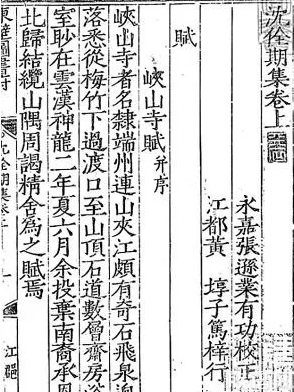 沈佺期集卷上
永嘉張遜業有功校正
江都黃埻子篤梓行
賦
峽山寺賦并序
峽山寺者名隸端州連山夾江頗有奇石飛泉
落悉從梅竹下過渡口至山頂石道數層齋房
室眇在雲漢神龍二年夏六月余投棄南裔承恩
北歸結纜山隅周謁精舍為之賦焉
東壁圖書府
沈佺期集卷上
一
江郡